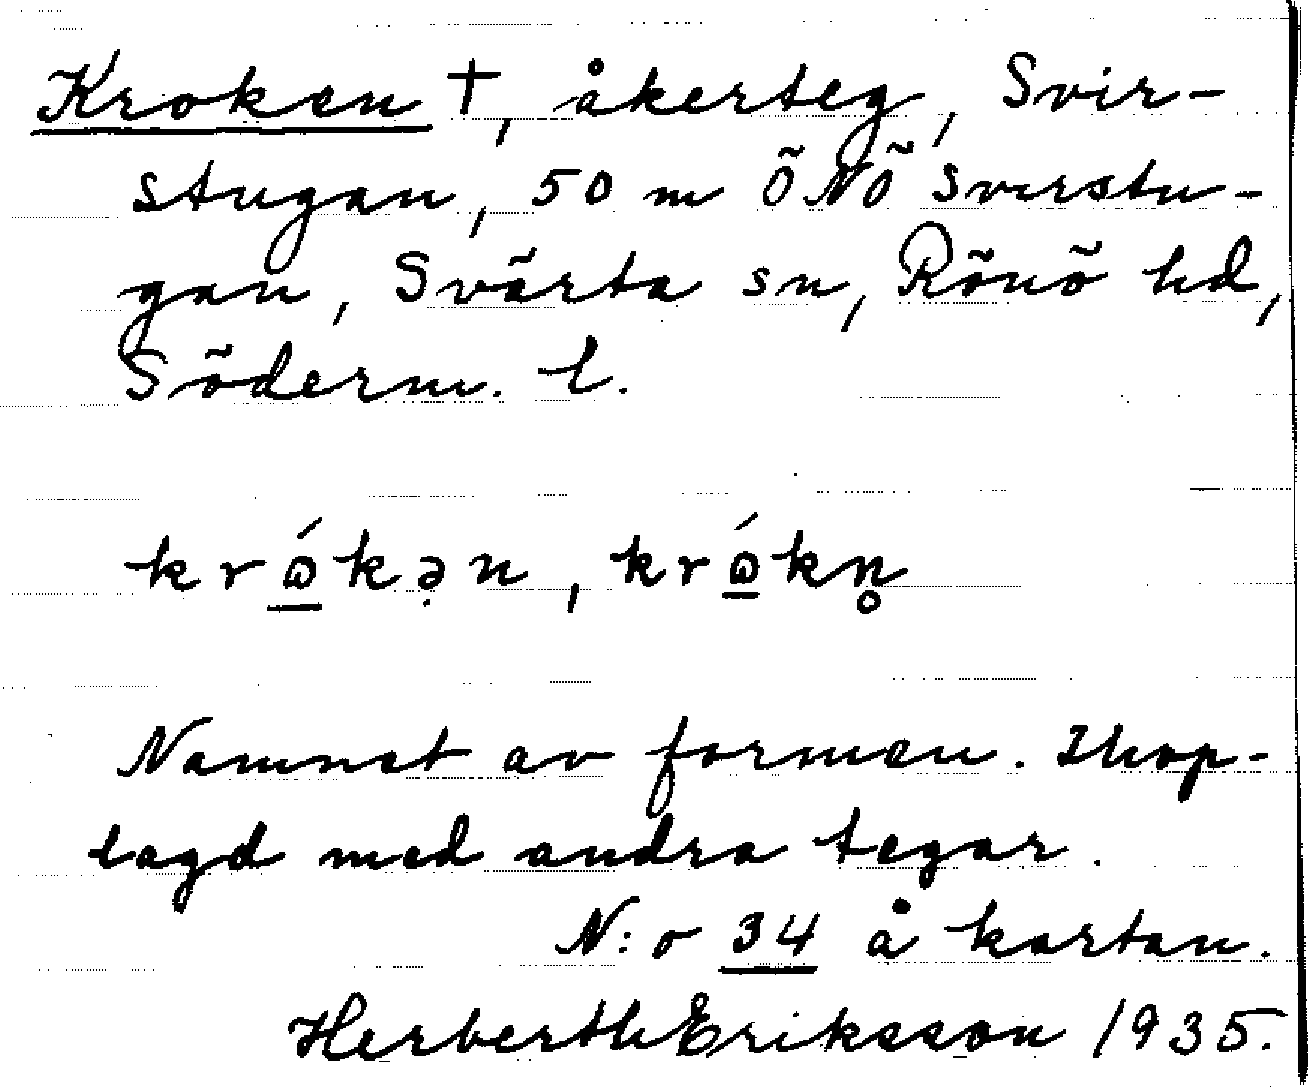 Kroken †, åkerteg, Svir-
stugan, 50 m ÖNÖ Svirstu-
gan, Svärta sn, Rönö hd,
Söderm. l.
krɷ̲́kə̣n, krɷ̲́kn̥
Namnet av formen. Ihop-
lagd med andra tegar.
N:o 34 å kartan.
Herberth Eriksson 1935.